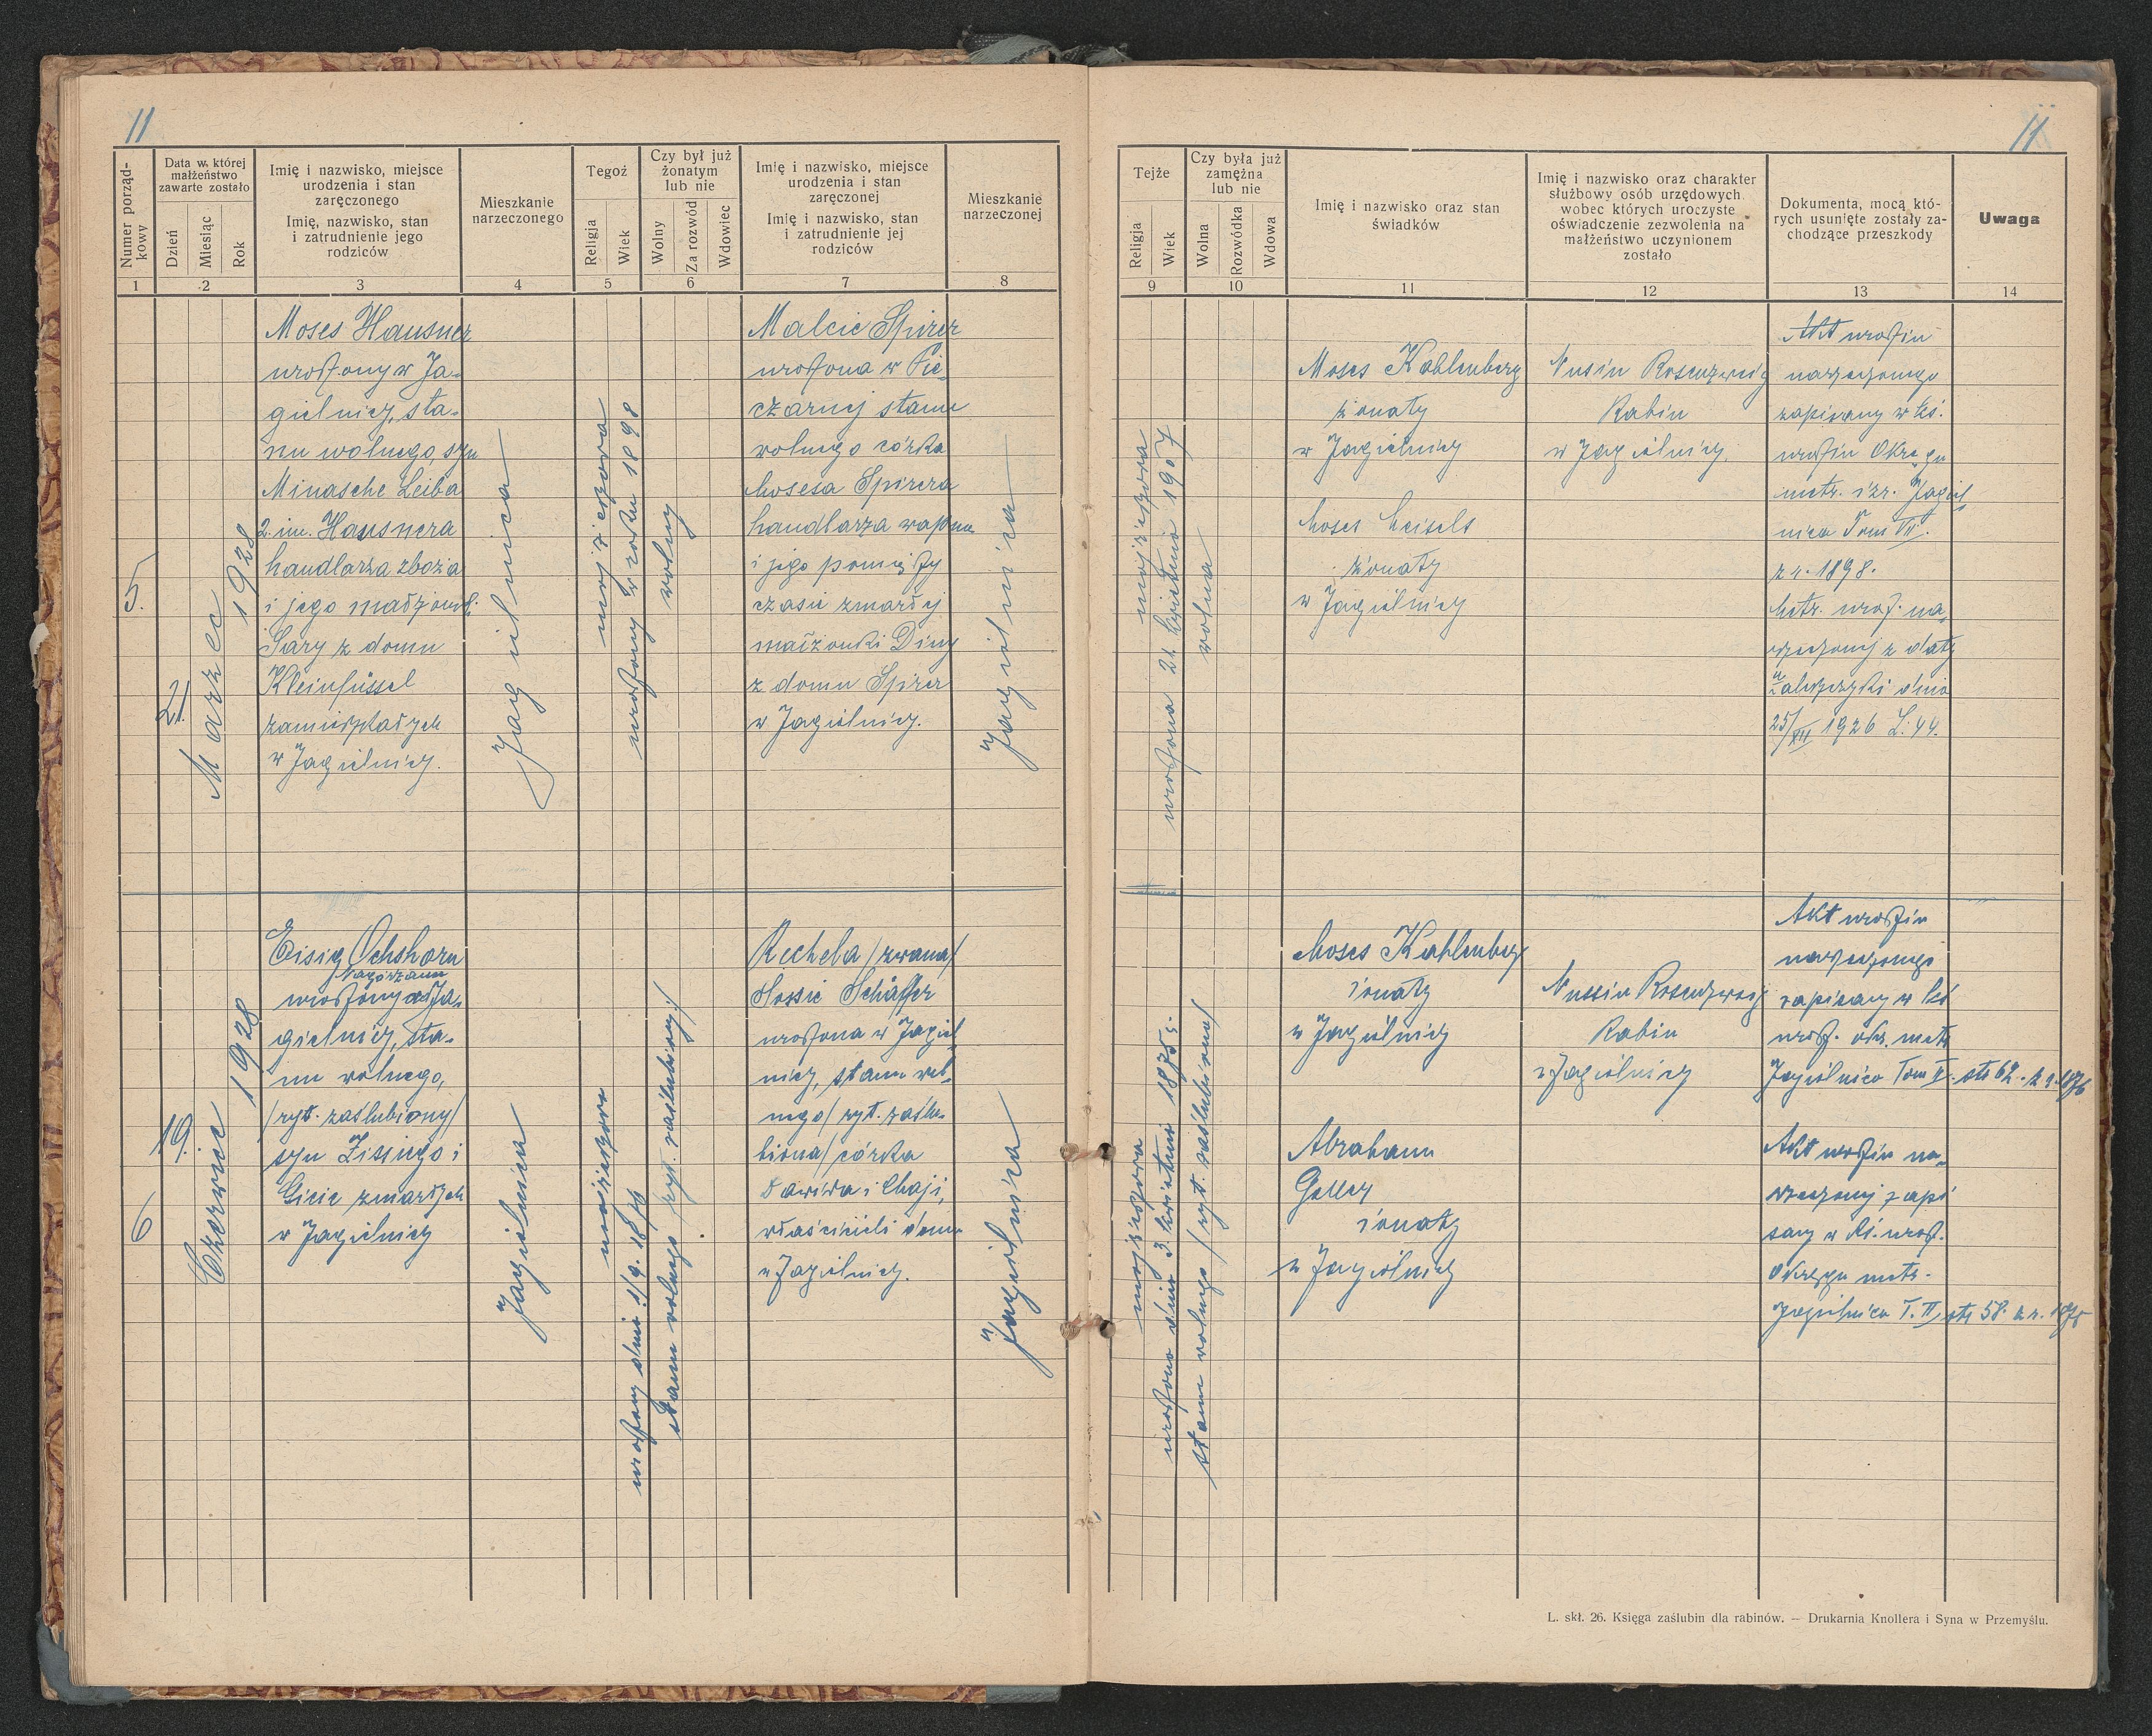 11
11
Numer porząd-
kowy
Data w której
małżeństwo
zawarte zostało
Dzień
Miesiąc
Rok
Imię i nazwisko, miejsce
urodzenia i stan
zaręczonego
Imię, nazwisko, stan
i zatrudnienie jego
rodziców
Mieszkanie
narzeczonego
Tegoż
Religja
Wiek
Czy był już
żonatym
lub nie
Wolny
Za rozwód
Wdowiec
Imię i nazwisko, miejsce
urodzenia i stan
zaręczonej
Imię i nazwisko, stan
i zatrudnienie jej
rodziców
Mieszkanie
narzeczonej
Tejże
Religja
Wiek
Czy była już
zamężna
lub nie
Wolna
Rozwódka
Wdowa
Imię i nazwisko oraz stan
świadków
Imię i nazwisko oraz charakter
służbowy osób urzędowych
wobec których uroczyste
oświadczenie zezwolenia na
małżeństwo uczynionem
zostało
Dokumenta, mocą któ-
rych usunięte zostały za-
chodzące przeszkody
Uwaga
1 2 3 4 5 6 7 8 9 10 11 12 13 14
5.
21.
Marzec 1928
Moses Hausner
urodzony w Ja-
gielnicy, sta-
nu wolnego, syn
Minasche Leiba
2. im. Hausnera
handlarza zboża
i jego małżonki
Sary z domu
Kleinfüssel
zamieszkałych
w Jagielnicy.
Jagielnica
mojżeszowa
urodzony w roku 1898
wolny
Malcie Spirer
urodzona w Pie-
czarnej stanu
wolnego córka
Mosesa Spirera
handlarza wapna
i jego pomiędzy
czasie zmarłej
małżonki Diny
z domu Spirer
w Jagielnicy.
Jagielnica
mojżeszowa
urodzona 21 kwietnia 1907
wolna
Moses Kahlenberg
żonaty
w Jagielnicy
Moses Meisels
żonaty
w Jagielnicy
Nusin Rosenzweig
Rabin
w Jagielnicy.
Akt urodzin
narzeczonego
zapisany w ks.
urodzin Okręgu
metr. izr. Jagiel
nica Tom VII.
z r. 1898.
Metr. urodz. na-
rzeczonej z daty
Zaleszczyki dnia
25/XII 1926 L: 44.
6
19.
Czerwiec 1928
Eisig Ochshorn
Nagórzanu
urodzony ad Ja-
gielnicy, sta-
nu wolnego,
/ryt. zaślubiony/
syn Zisiego i
Gicie zmarłych
w Jagielnicy
Jagielnica
mojżeszowa
urodzony dnia 1/9. 1876
stanu wolnego /ryt. zaślubiony/
Rechela /zwana/
Sossie Schäffer
urodzona w Jagiel
nicy, stanu wol-
nego /ryt. zaślu-
biona/ córka
Dawida i Chaji,
właścicieli domu
w Jagielnicy.
Jagielnica
mojżeszowa
urodzona dnia 3. kwietnia 1875 r.
stanu wolnego /ryt. zaślubiona/
Moses Kahlenberg
żonaty
w Jagielnicy
Abraham
Geller
żonaty
w Jagielnicy
Nussin Rosenzweig
Rabin
w Jagielnicy
Akt urodzin
narzeczonego
zapisany w ks
urodz. okr. metr
Jagielnica Tom II. str 62. z r. 1876
Akt urodzin na-
rzeczonej zapi
sany w ks. urodz.
Okręgu metr.
Jagielnica T. II, str 58. z r. 1875
L. skł. 26. Księga zaślubin dla rabinów. — Drukarnia Knollera i Syna w Przemyślu.